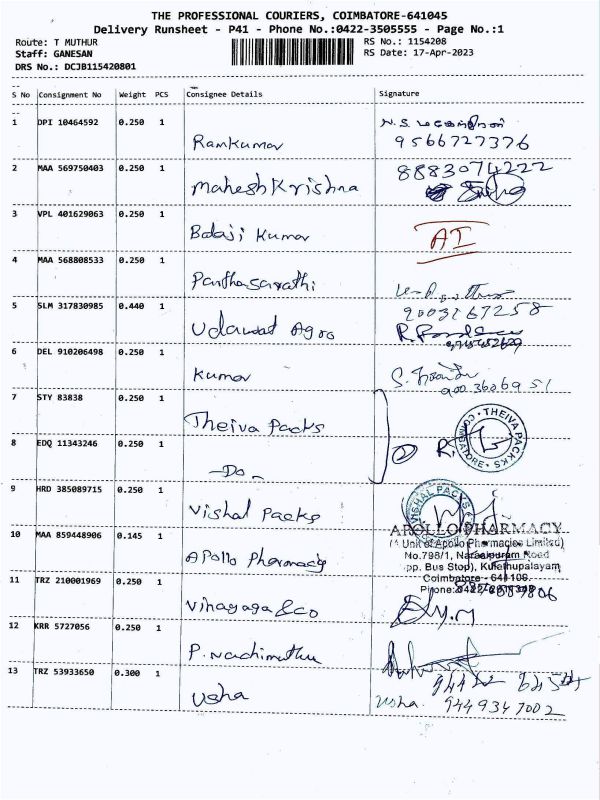 THE PROFESSIONAL COURIERS, COIMBATORE-641045
Delivery Runsheet - P41 - Phone No.:0422-3505555 - Page No.:1
Route: T MUTHUR
RS No.: 1154208
Staff: GANESAN
RS Date: 17-Apr-2023
DRS No.: DCJB115420801
S No Consignment No Weight PCS Consignee Details Signature
1 DPI 10464592 0.250 1
Ramkumar 9566727376
2 MAA 569750403 0.250 1 8883074222
Mahesh Krishna
3 VPL 401629063 0.250 1
Balaji Kumar AI
4 MAA 568808533 0.250 1
Parthasarathi
9003167258
5 SLM 317830985 0.440 1
Udanwat Agro
6 DEL 910206498 0.250 1
Kumar
7 STY 83838 0.250 1
Theiva Packs
THEIVA PACKS COIMBATORE
8 EDQ 11343246 0.250 1
-Do-
9 HRD 385089715 0.250 1
Vishal Packs
VISHAL PACKS
10 MAA 859448906 0.145 1
Apollo Pharmacy
APOLLO PHARMACY
(A Unit of Apollo Pharmacies Limited)
No.798/1, Narasipuram Road
Opp. Bus Stop), Kulathupalayam,
Coimbatore - 641109.
11 TRZ 210001969 0.250 1
Vinayaga & Co
12 KRR 5727056 0.250 1
P. Nachimuthu
13 TRZ 53933650 0.300 1
Usha
Usha. 9449347002